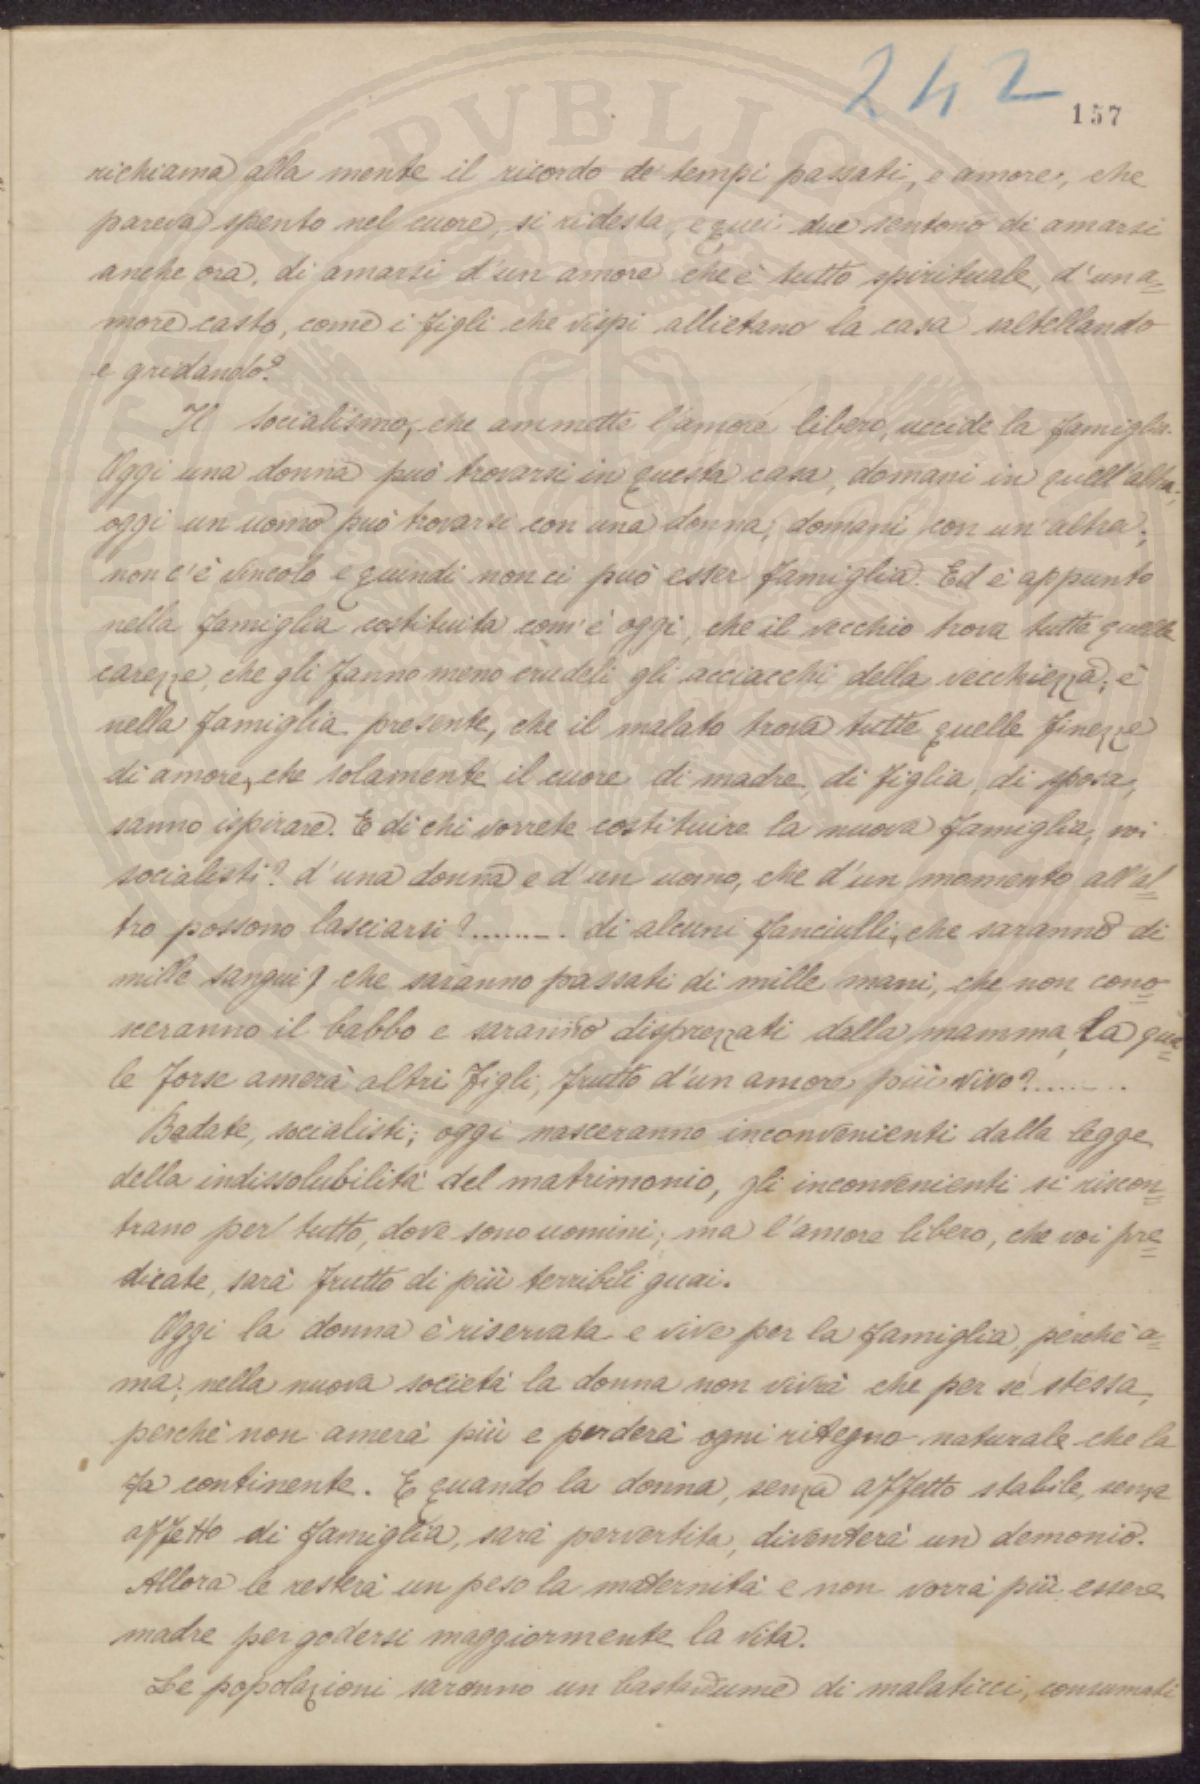 242
157
richiama alla mente il ricordo de' tempi passati, e amore, che
pareva spento nel cuore, si ridesta, e quei due sentono di amarsi
anche ora, di amarsi d'un amore che è tutto spirituale, d'una=
more casto, come i figli che vispi allietano la casa saltellando
e gridando?
Il socialismo, che ammette l'amore libero, uccide la famiglia.
Oggi una donna può trovarsi in questa casa, domani in quell'altra;
oggi un uomo può trovarsi con una donna, domani con un'altra;
non c'è vincolo e quindi non ci può esser famiglia. Ed è appunto
nella famiglia costituita com'è oggi, che il vecchio trova tutte quelle
carezze, che gli fanno meno crudeli gli acciacchi della vecchiezza; è
nella famiglia presente, che il malato trova tutte quelle finezze
di amore, che solamente il cuore di madre, di figlia, di sposa,
sanno ispirare. E di chi vorrete costituire la nuova famiglia, voi
socialisti? d'una donna e d'un uomo, che d'un momento all'al=
tro possono lasciarsi?......... di alcuni fanciulli, che saranno di
mille sangui, che saranno passati di mille mani, che non cono=
sceranno il babbo e saranno disprezzati dalla mamma, la qua=
le forse amerà altri figli, frutto d'un amore più vivo?........
Badate, socialisti; oggi nasceranno inconvenienti dalla legge
della indissolubilità del matrimonio, gli inconvenienti si riscon=
trano per tutto, dove sono uomini; ma l'amore libero, che voi pre=
dicate, sarà frutto di più terribili guai.
Oggi la donna è riservata e vive per la famiglia, perchè a=
ma; nella nuova società la donna non vivrà che per sé stessa,
perchè non amerà più e perderà ogni ritegno naturale che la
fa continente. E quando la donna, senza affetto stabile, senza
affetto di famiglia, sarà pervertita, diventerà un demonio.
Allora le resterà un peso la maternità e non vorrà più essere
madre per godersi maggiormente la vita.
Le popolazioni saranno un bastardume di malaticci, consumati